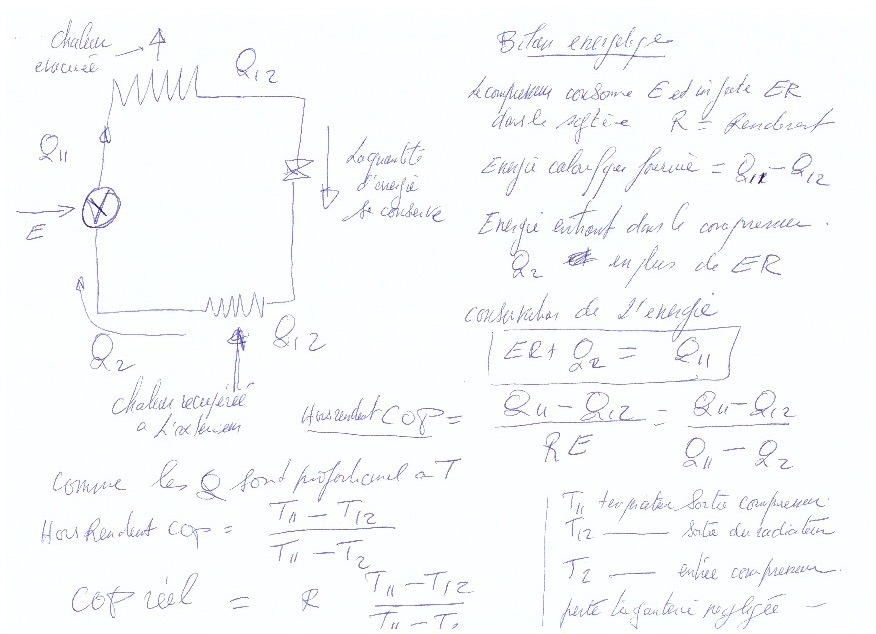 chaleur
évacuée
Q12
Q11
E
La quantité
d'énergie
se conserve
Q2
Q12
chaleur recupérée
a l'exterieur
Bilan energetique
Le compresseur consomme E et injecte ER
dans le système R = Rendement
Energie calorifique fournie = Q11 - Q12
Energie entrant dans le compresseur.
Q2 en plus de ER
conservation de l'énergie
ER + Q2 = Q11
Hors rendent COP = Q11 - Q12 / RE = Q11 - Q12 / Q11 - Q2
comme les Q sont proportionel a T
Hors Rendent COP = T11 - T12 / T11 - T2
COP réel = R T11 - T12 / T11 - T2
T11 temperature sortie compresseur.
T12 —— sortie du radiateur
T2 —— entrée compresseur.
perte negligée —